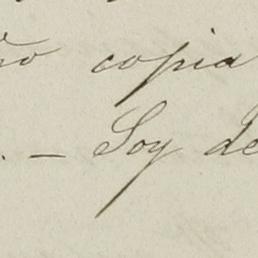 copia
. — Soy de